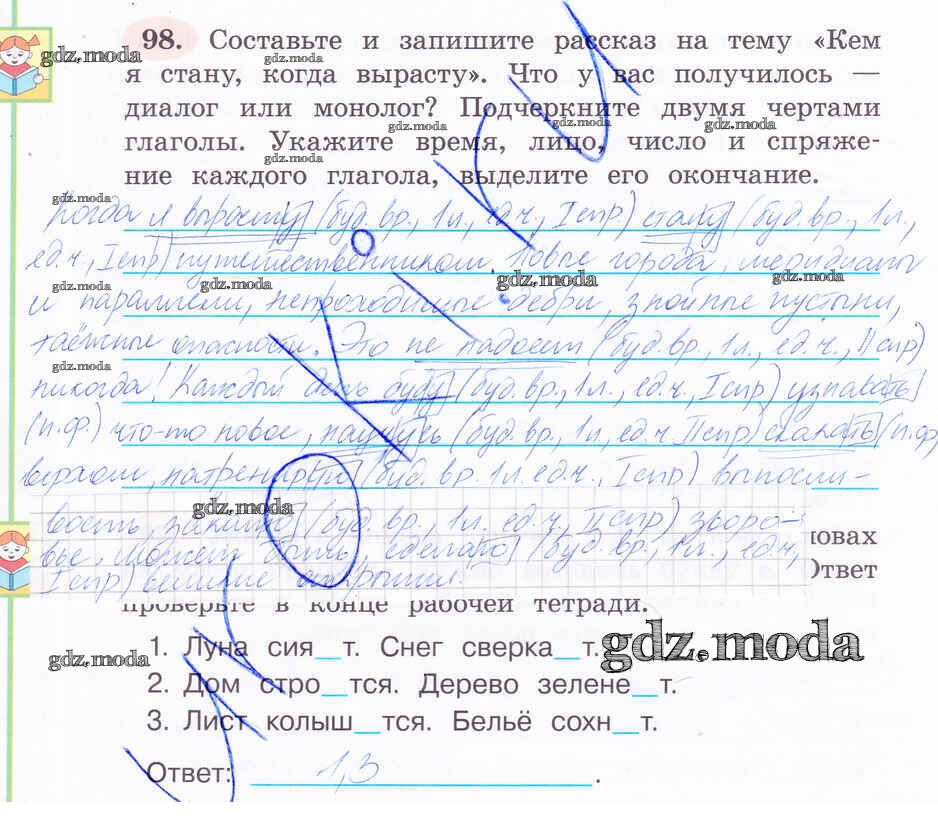 98. Составьте и запишите рассказ на тему «Кем
gdz.moda gdz.moda
я стану, когда вырасту». Что у вас получилось —
диалог или монолог? Подчеркните двумя чертами
gdz.moda gdz.moda gdz.moda
глаголы. Укажите время, лицо, число и спряже-
gdz.moda
ние каждого глагола, выделите его окончание.
gdz.moda
Когда я вырасту (буд. вр., 1л., ед.ч., I спр.) стану (буд. вр., 1л.,
gdz.moda gdz.moda
ед.ч., I спр.) путешественником. Новые города, меридианы
gdz.moda gdz.moda gdz.moda
и параллели, непроходимые дебри, знойные пустыни,
таёжные опасности. Это не надоест (буд. вр., 1л., ед.ч., II спр)
gdz.moda
никогда! Каждый день буду (буд. вр., 1л., ед.ч., I спр) узнавать
(н.ф.) что-то новое, научусь (буд. вр., 1л, ед.ч II спр) скакать (н.ф)
верхом, натренирую (буд. вр. 1л. ед.ч., I спр) выносли-
gdz.moda
вость, (буд. вр. 1л. ед.ч., II спр) здоро-
вье. Может быть, сделаю (буд. вр., 1л., ед.ч, ловах
I спр) великие открытия. Ответ
проверьте в конце рабочей тетради.
1. Луна сия_т. Снег сверка_т.
gdz.moda gdz.moda
2. Дом стро_тся. Дерево зелене_т.
3. Лист колыш_тся. Бельё сохн_т.
Ответ: 1,3.